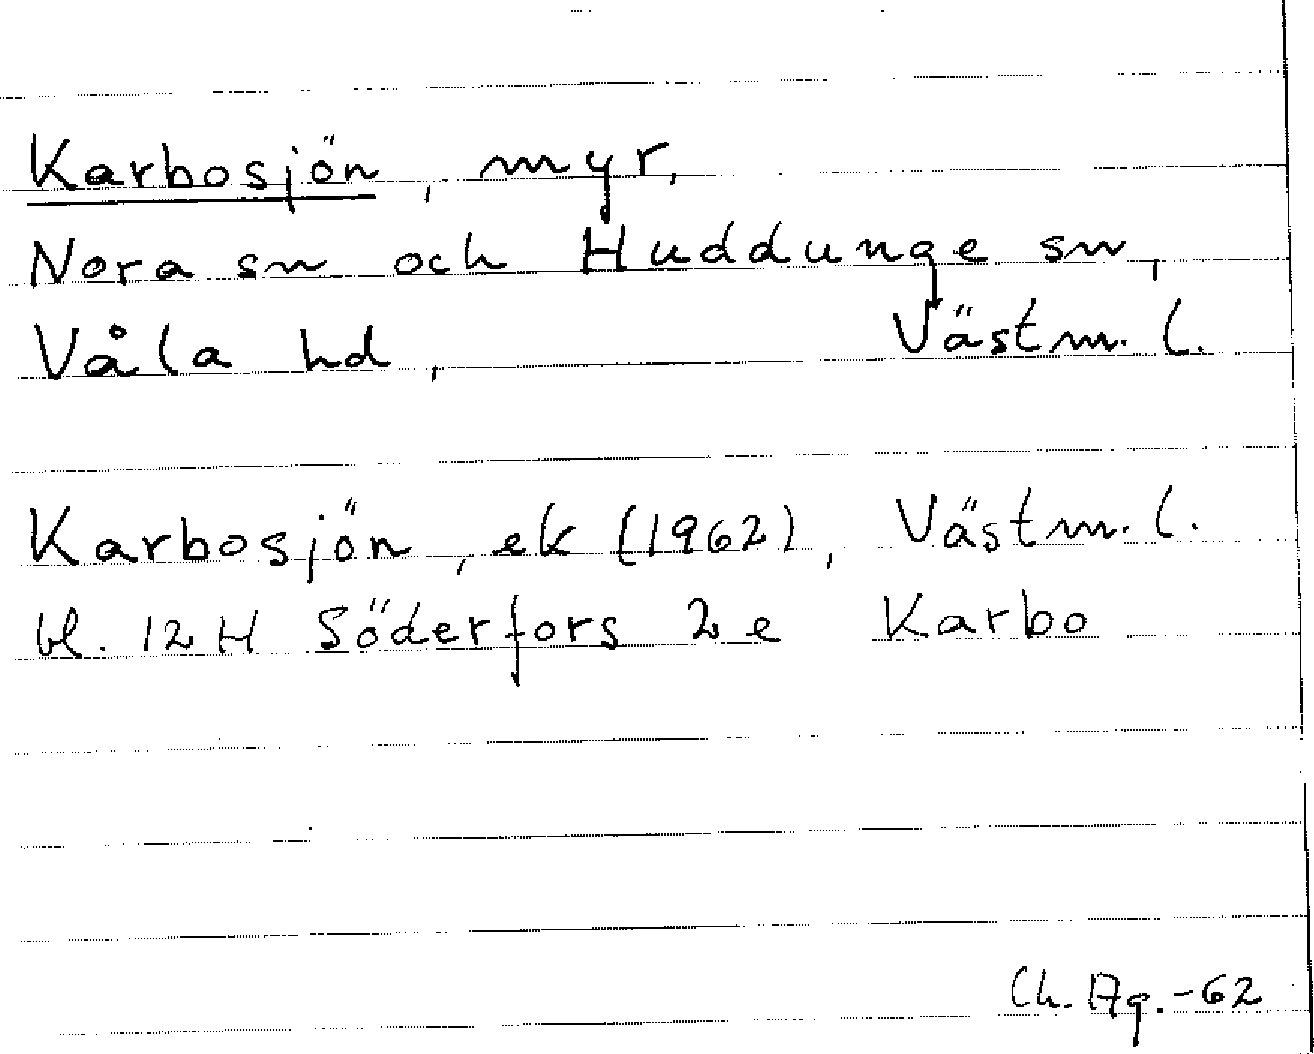 Karbosjön, myr,
Nora sn och Huddunge sn,
Våla hd, Västm. l.
Karbosjön, ek (1962), Västm. l.
bl. 12 H Söderfors 2 e Karbo
Ch. Ag. -62